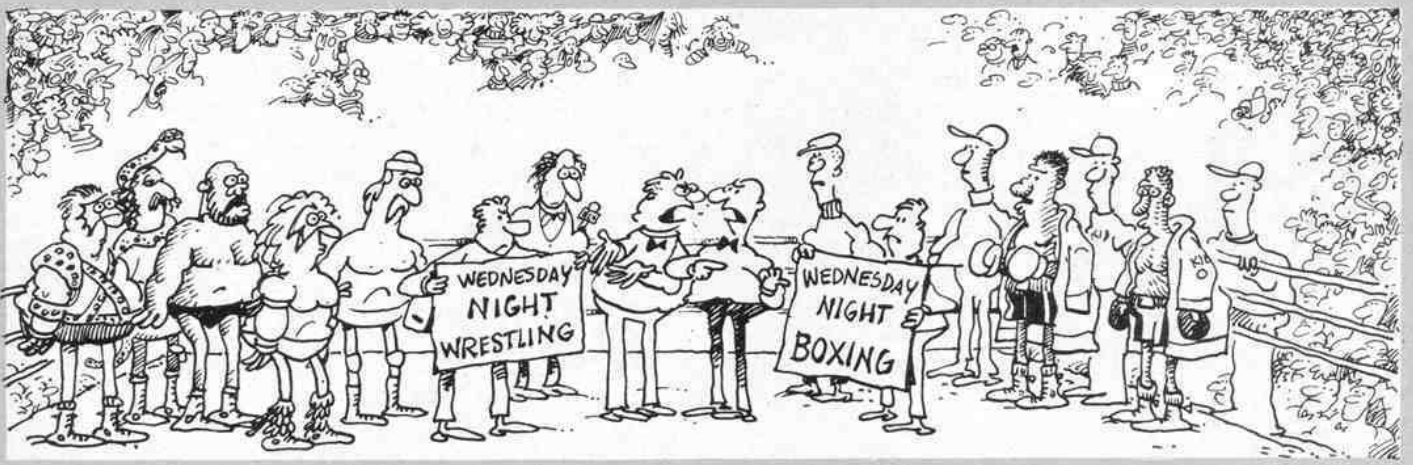 WEDNESDAY
NIGHT
WRESTLING
WEDNESDAY
NIGHT
BOXING